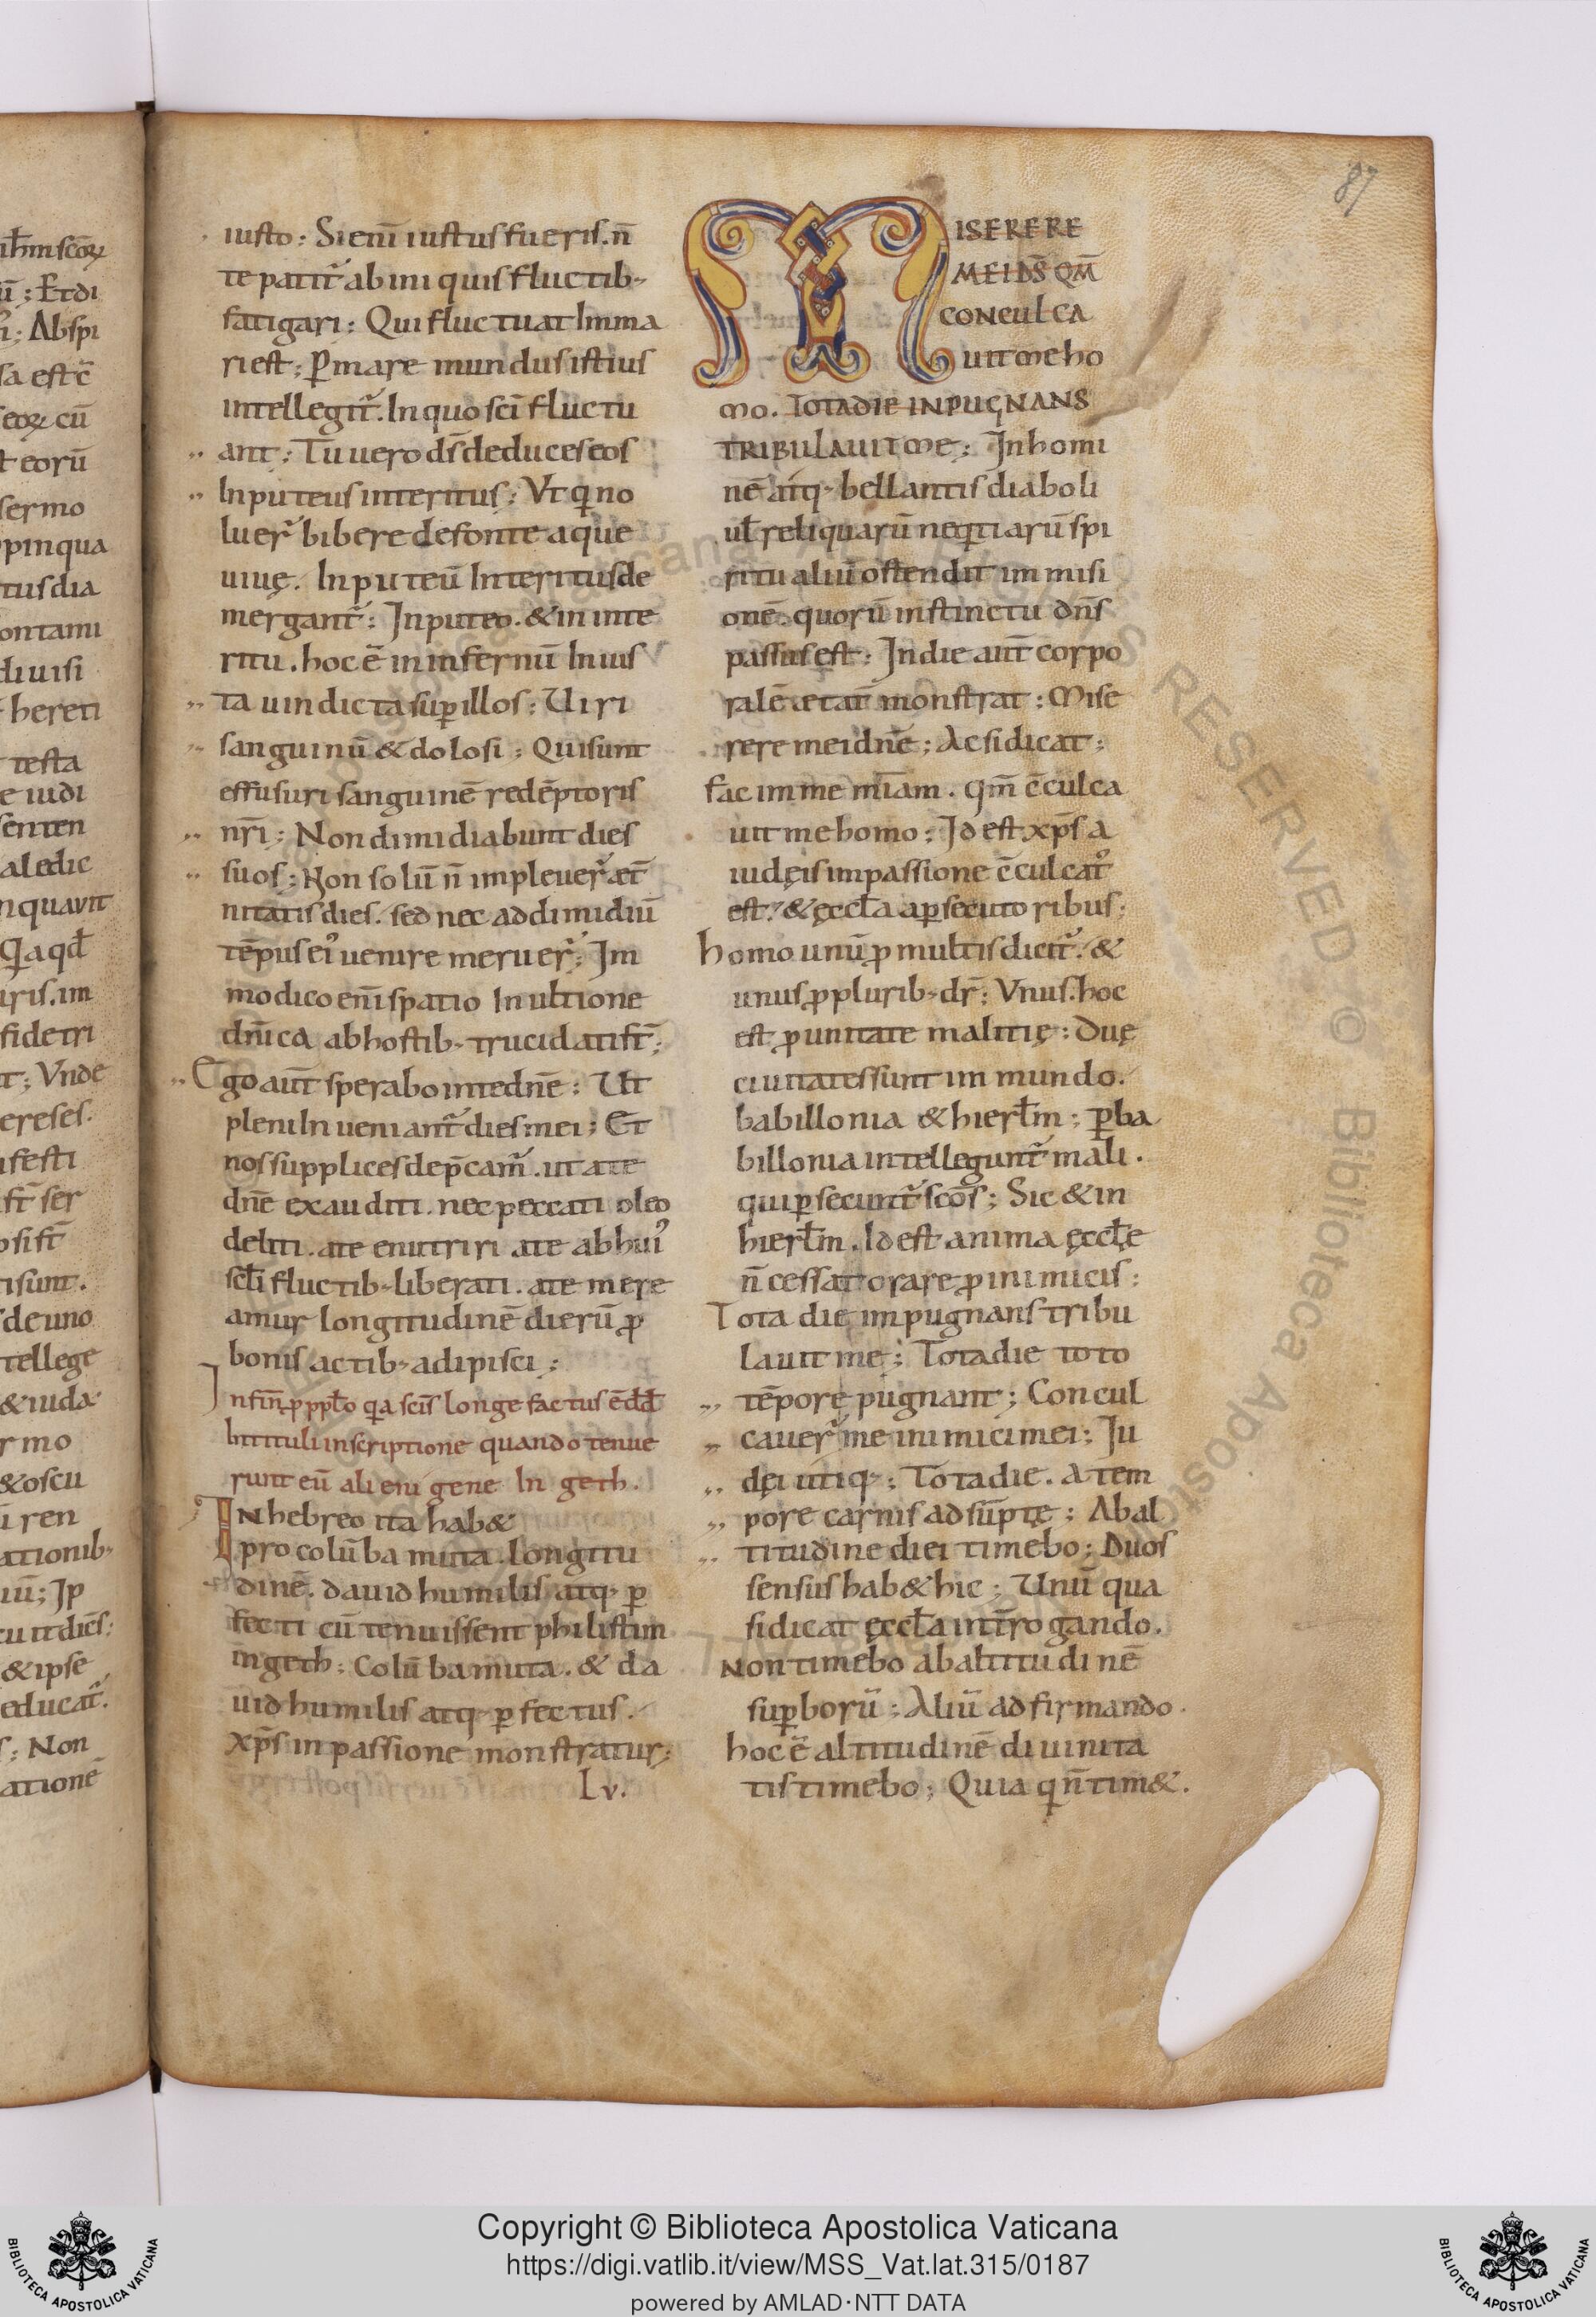 87
iusto: Si eni̅ iustus fueris. n̅
te patit᷑ ab iniquis fluctib;
fatigari: Qui fluctuat In ma
ri est; P̲ mare mundus istius
intellegit᷑. In quo sc̅i fluctu
ant: Tu uero d̅s deduces eos
In puteus interitus: Vt qi no
luer᷑ bibere de fonte aque
uiuę. In puteu̅ Interitus de
mergant᷑: In puteo. & in inte
ritu. hoc e̅ in infernu̅ In ius
ta uindicta sup̲ illos: Uiri
sanguinu̅ & dolosi: Qui sunt
effusuri sanguine̅ rede̅ptoris
nr̅i: Non dimidiabunt dies
suos: Non solu̅ n̅ impleuer᷑ æt̅
nitatis dies. sed nec ad dimidiu̅
te̅pus ei᾿ uenire meruer᷑: Im
modico eni̅ spatio In ultione
dn̅ica ab hostib; trucidati st̅;
Ego aut̅ sperabo in te dn̅e: Ut
pleni Inueniant᷑ dies mei; Et
nos supplices dep̅cam᷑. ut a te
dn̅e exauditi. nec peccati oleo
deliti. a te enutriri a te ab hui᾿
sc̅li fluctib; liberati. a te mere
amur longitudine̅ dieru̅ p̲
bonis actib; adipisci;
In fin̅ p̲ ppl̅o qi a scis̅ longe factus e̅ dd̅
In tituli inscriptione quando tenue
runt eu̅ alienigene In geth.
IN hebreo ita hab&
pro colu̅ba muta. longitu
dine̅. dauid humilis atq; p̲
fecti cu̅ tenuissent philistim
in geth; Colu̅ba muta. & da
uid humilis atq; p̲fectus.
xp̅s in passione monstratur;
Lv.
MISERERE
MEI D̅S QM̅
CONCULCA
UIT ME HO
MO. TOTA DIE INPUGNANS
TRIBULAUIT ME: In homi
ne̅ atq; bellantis diaboli
ul̅ reliquaru̅ neqitiaru̅ spi
ritualiu̅ ostendit immisi
one̅. quoru̅ instinctu dn̅s
passus est: In die aut̅ corpo
rale̅ ætat̅ monstrat: Mise
rere mei dn̅e; Ac si dicat:
fac im me mi̅am. qm̅ c̅culca
uit me homo: Id est xp̅s a
iudęis im passione c̅culcat᾿
est. & ęccl̅a a p̲secutoribus:
homo unu̅ p̲ multis dicit᷑. &
unus p̲ plurib; dr̅: Vnus. hoc
est p̲ unitate malitię: Duę
ciuitates sunt im mundo.
babillonia & hierl̅m; P̲ ba
billonia intellegunt᷑ mali.
qui p̲secunt᷑ sc̅os; Sic & in
hierl̅m. Id est anima ęccl̅ę
n̅ cessat orare p̲ inimicis:
Tota die impugnans tribu
lauit me; Tota die toto
te̅pore pugnant; Concul
cauer᷑ me inimici mei; Iu
dęi utiq;: Tota die. A tem
pore carnis adsu̅ptę; Ab al
titudine diei timebo; Duos
sensus hab& hic; Unu̅ qua
si dicat ęccl̅a int̅rogando.
Non timebo ab altitudine̅
sup̲boru̅: Aliu̅ adfirmando.
hoc e̅ altitudine̅ diuinita
tis timebo; Quia qi n̅ tim&.
Copyright © Biblioteca Apostolica Vaticana
https://digi.vatlib.it/view/MSS_Vat.lat.315/0187
powered by AMLAD·NTT DATA